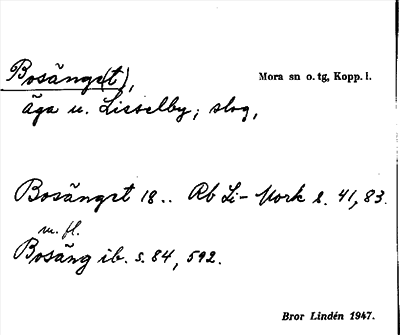 Bosänge(t),
Mora sn o. tg, Kopp. l.
äga u. Lisselby; slog,
Bosänget 18.. Rb Li- Mork s. 41, 83.
m. fl.
Bosäng ib. s. 84, 592.
Bror Lindén 1947.